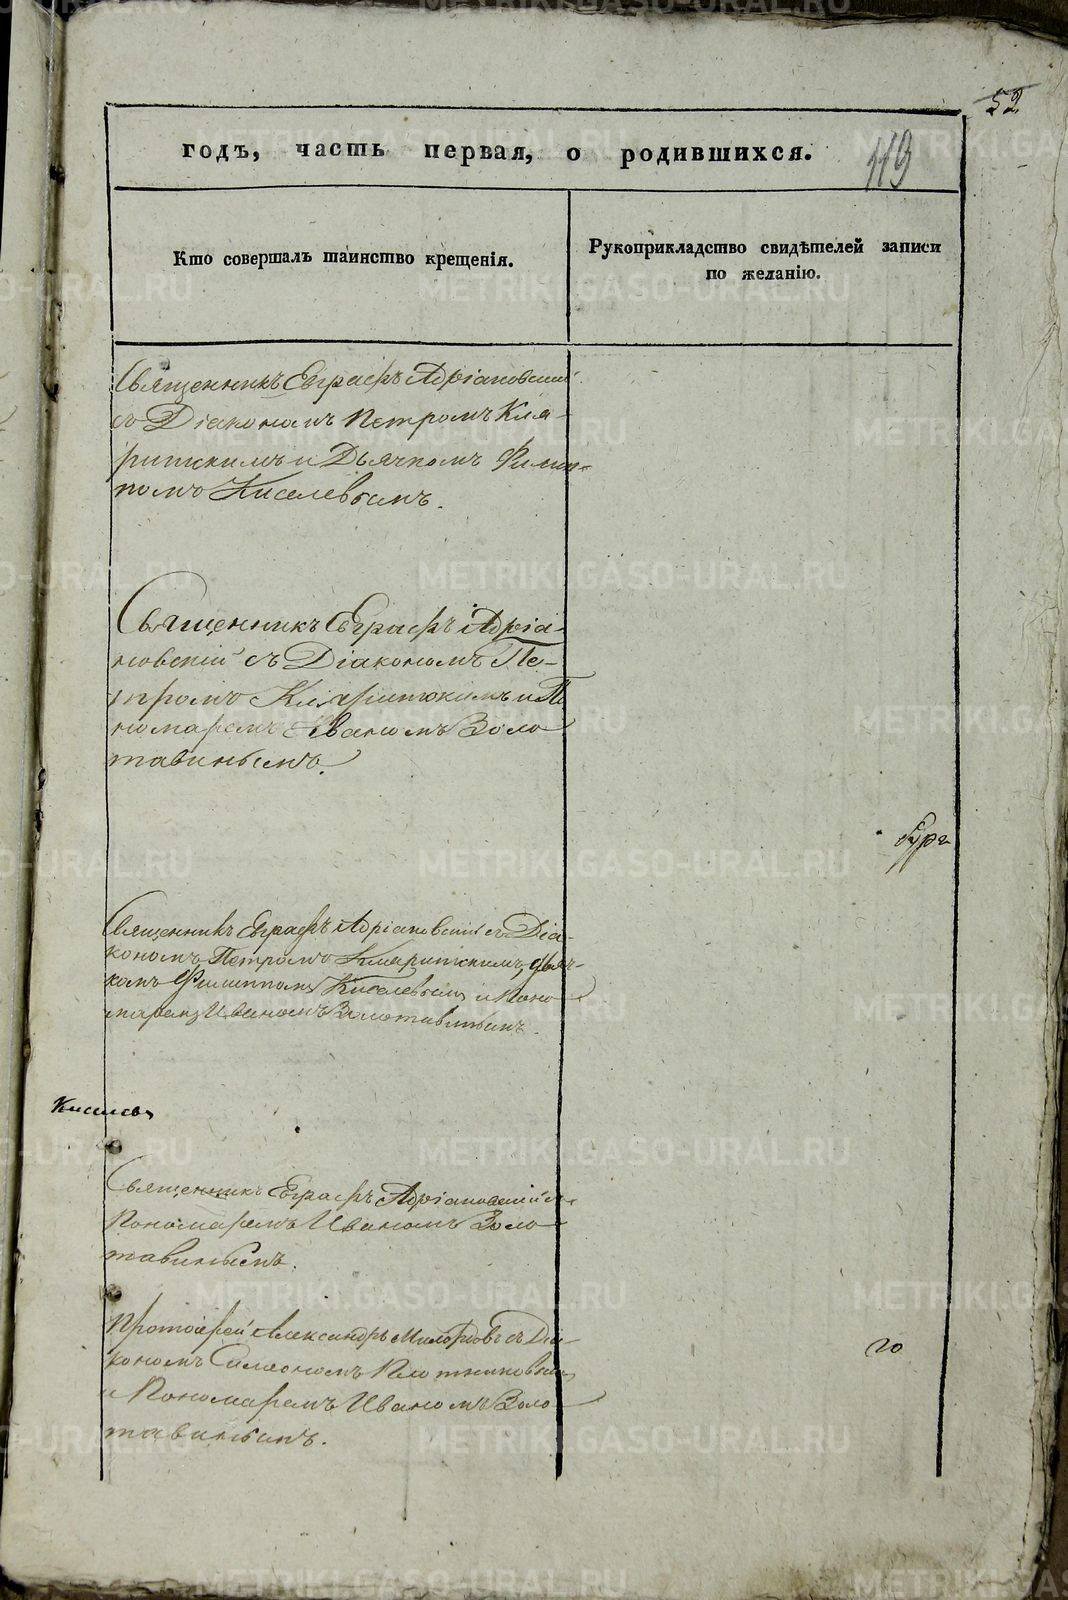 52
119
годъ, часть первая, о родившихся.
Кто совершалъ таинство крещенія.
Рукоприкладство свидѣтелей записи
по желанію.
Священникъ Евграфъ Адріановскій
съ Діакономъ Петромъ Кля-
ритскимъ и Дьячкомъ Филип-
помъ Киселевымъ.
Священникъ Евграфъ Адріа-
новскій съ Діакономъ Пе-
тромъ Кляритскимъ и По
номаремъ Иваномъ Золо
тавинымъ.
Священникъ Евграфъ Адріановскій съ Діа-
кономъ Петромъ Кляритскимъ, Дьяч-
комъ Филиппомъ Киселевымъ и Поно
маремъ Иваномъ Золотавинымъ.
Киселевъ
Священникъ Евграфъ Адріановскій съ
Пономаремъ Иваномъ Золо
тавинымъ.
Протоіерей Александръ съ Діа
кономъ Симеономъ Плотниковымъ
и Пономаремъ Иваномъ Золо
тавинымъ.
го
METRIKI.GASO-URAL.RU